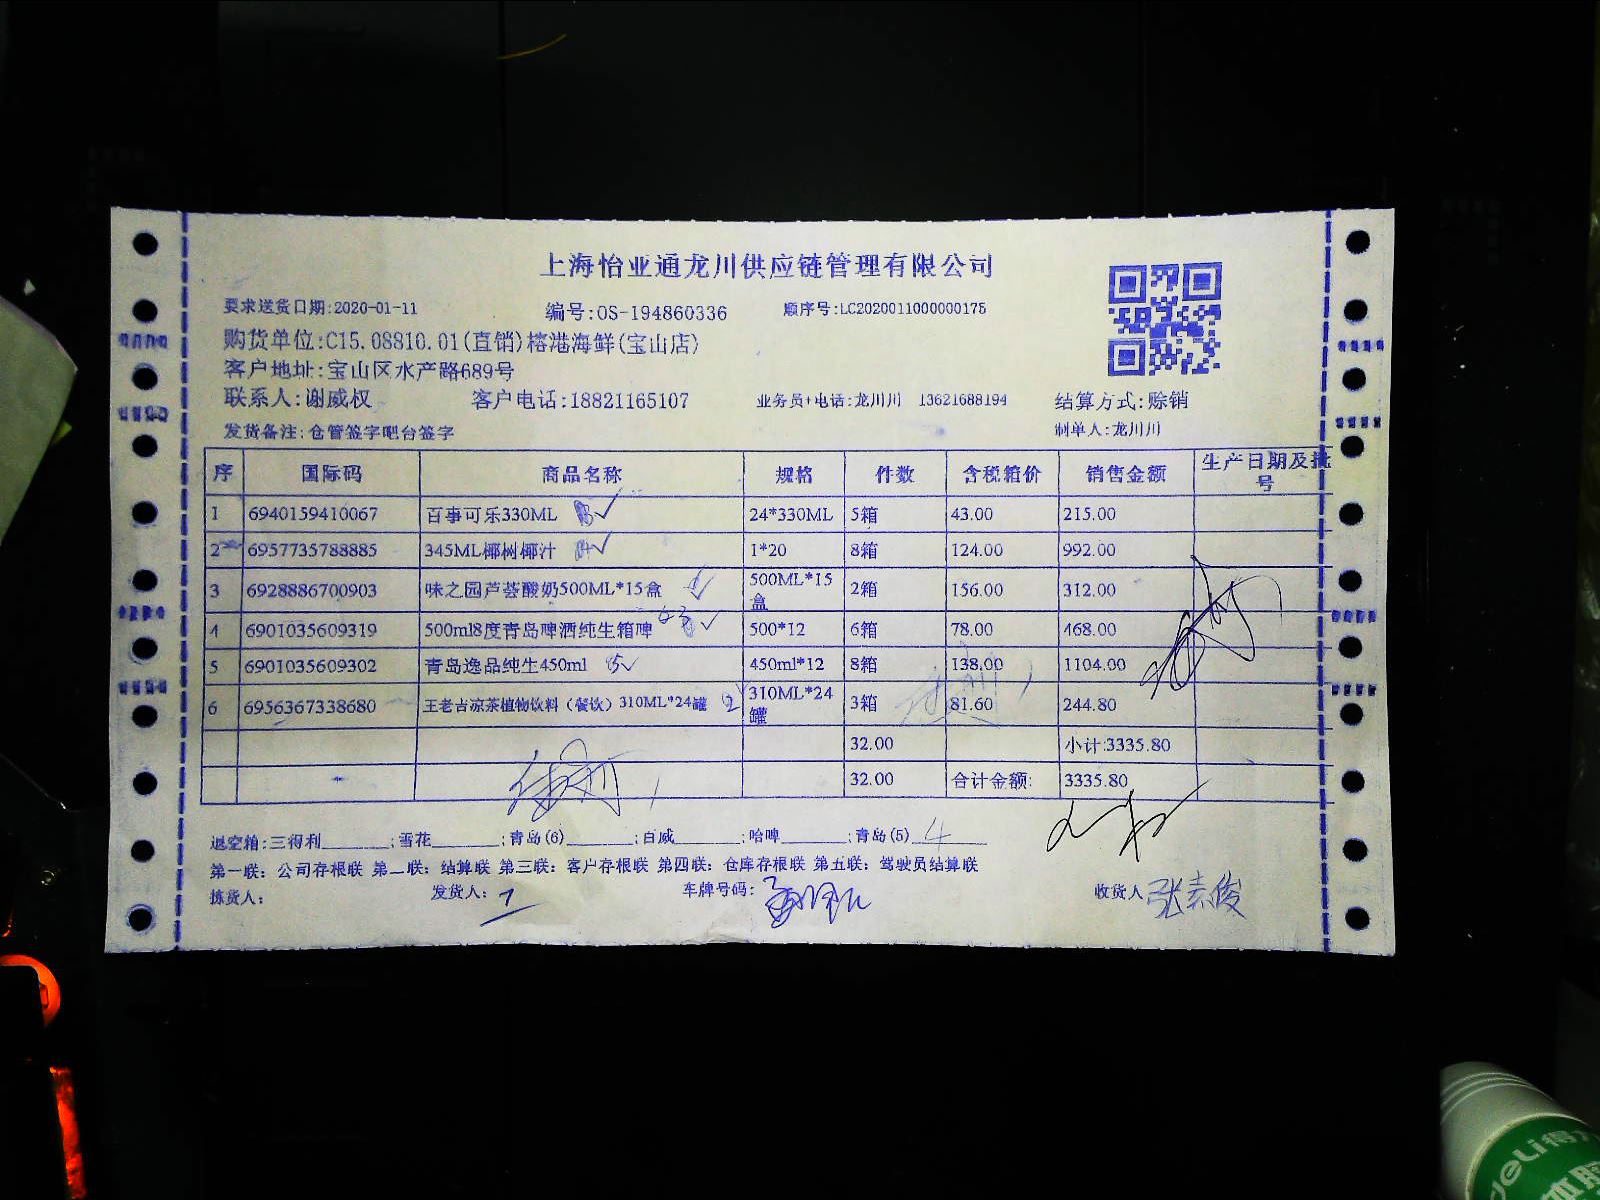 上海怡亚通龙川供应链管理有限公司
要求送货日期:2020-01-11 编号:OS-194860336 顺序号:LC2020011000000175
购货单位:C15.08810.01(直销)榕港海鲜(宝山店)
客户地址:宝山区水产路689号
联系人:谢威权 客户电话:18821165107 业务员+电话:龙川川 13621688194 结算方式:赊销
发货备注:仓管签字吧台签字 制单人:龙川川
序 国际码 商品名称 规格 件数 含税箱价 销售金额 生产日期及批号
1 6940159410067 百事可乐330ML 24*330ML 5箱 43.00 215.00
2 6957735788885 345ML椰树椰汁 1*20 8箱 124.00 992.00
3 6928886700903 味之园芦荟酸奶500ML*15盒 500ML*15盒 2箱 156.00 312.00
4 6901035609319 500ml8度青岛啤酒纯生箱啤 500*12 6箱 78.00 468.00
5 6901035609302 青岛逸品纯生450ml 450ml*12 8箱 138.00 1104.00
6 6956367338680 王老吉凉茶植物饮料（餐饮）310ML*24罐 310ML*24罐 3箱 81.60 244.80
32.00 小计:3335.80
32.00 合计金额: 3335.80
退空箱:三得利______;雪花______;青岛(6)______;百威______;哈啤______;青岛(5) 4
第一联：公司存根联 第二联：结算联 第三联：客户存根联 第四联：仓库存根联 第五联：驾驶员结算联
拣货人: 发货人: 车牌号码: 收货人 张素俊
deli得力